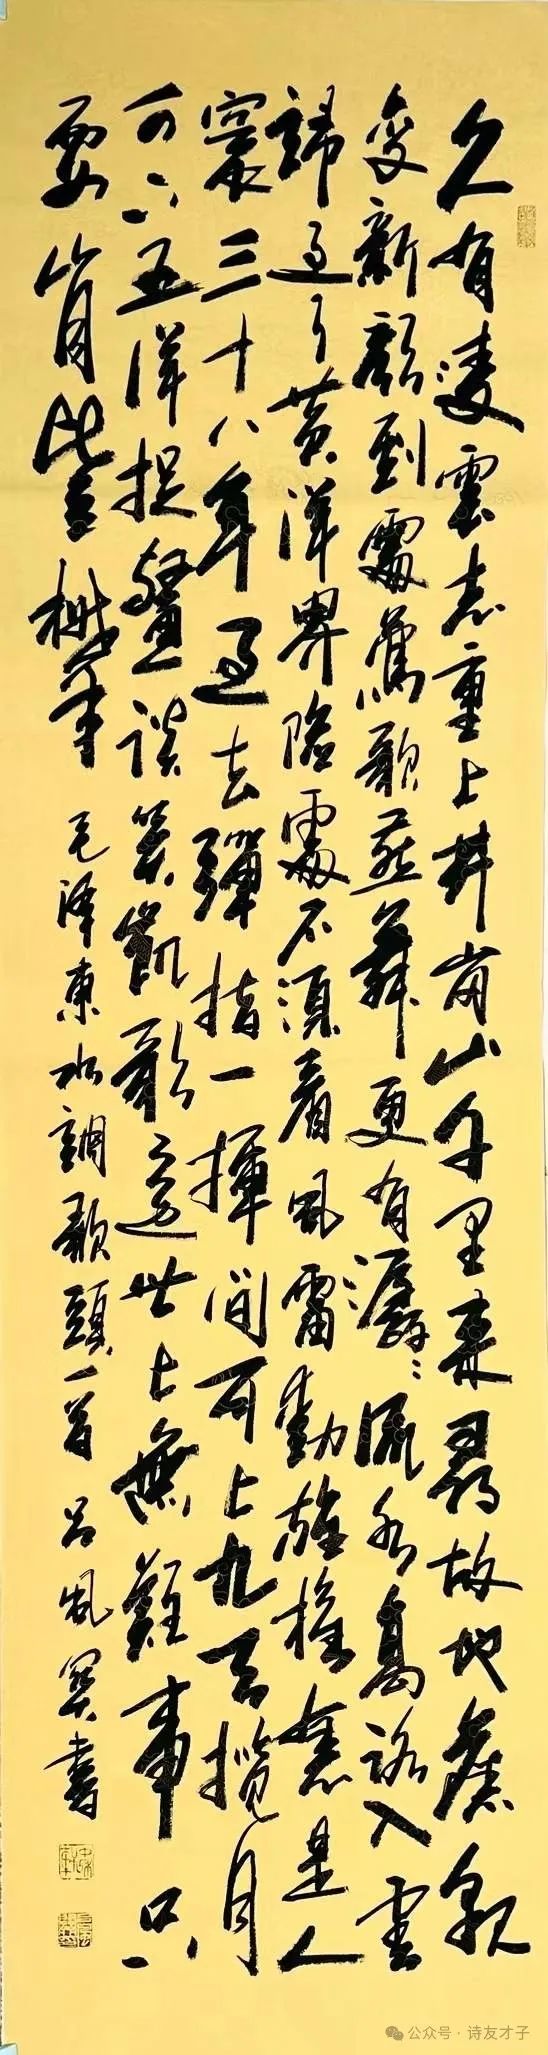 久有凌雲志重上井岡山千里來尋故地舊貌
變新顏到處鶯歌燕舞更有潺〻流水高路入雲
端過了黃洋界險處不須看風雷動旌旗奮是人
寰三十八年過去彈指一揮間可上九天攬月
可下五洋捉鱉談笑凱歌還世上無難事只
要肯登攀 毛澤東水調歌頭一首 呂風書
公众号·诗友才子